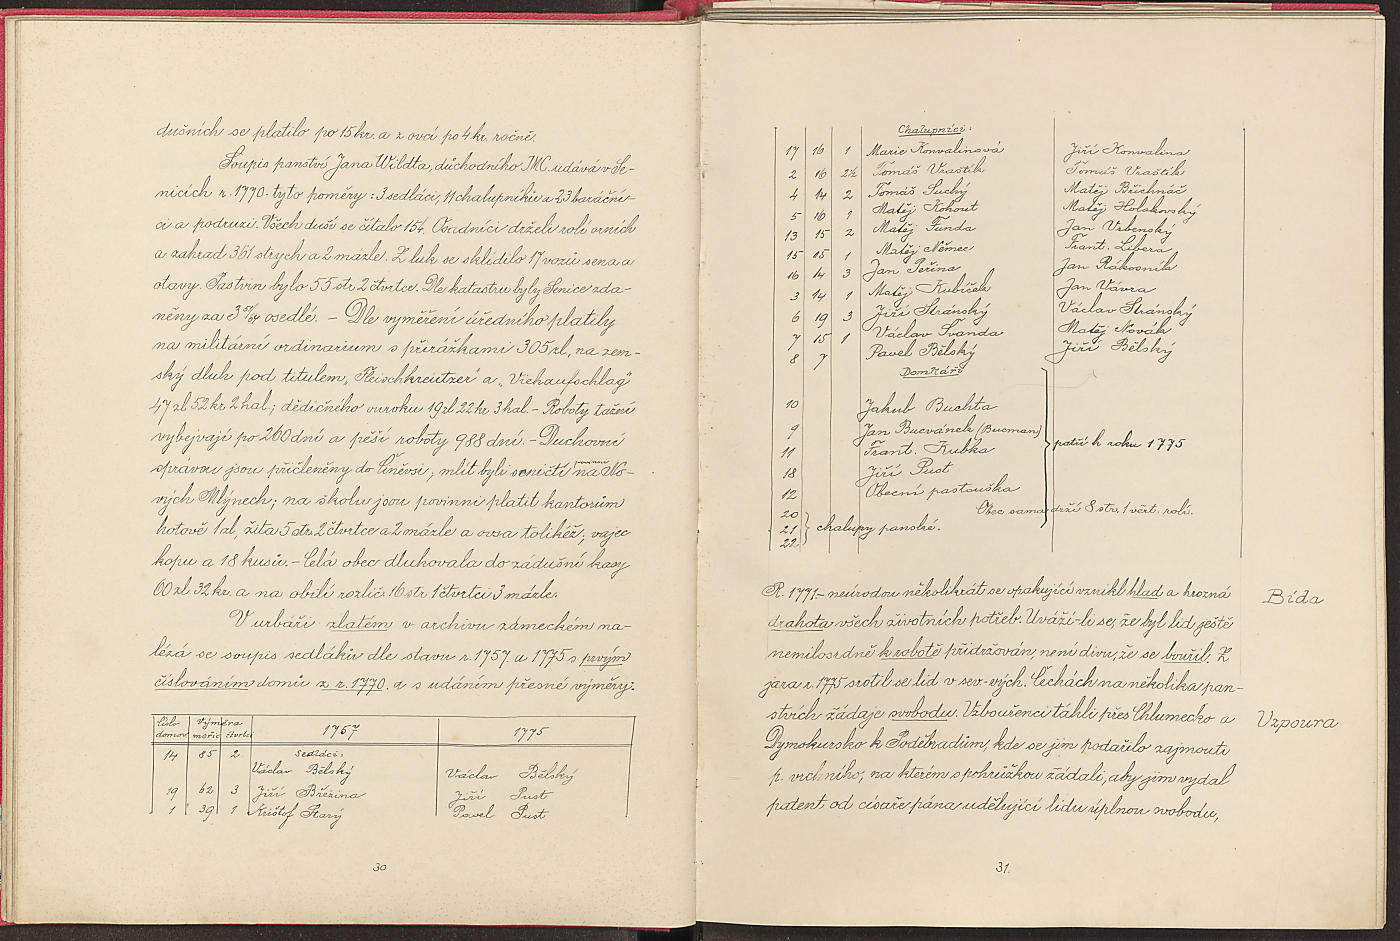 dušních se platilo po 15 kr. a z ovcí po 4 kr. ročně.
Soupis panství Jana Wildta, důchodního JMC. udává v Se-
nicích r. 1770. tyto poměry: 3 sedláci, 11 chalupníků a 23 baráční-
ci a podruzi. Všech duší se čítalo 154. Osadníci drželi rolí orních
a zahrad 361 strych a 2 mázle. Z luk se sklidilo 17 vozů sena a
otavy. Pastvin bylo 55 str. 2 čtvrtce. Dle katastru byly Senice zda-
něny za 3 51/64 osedlé. – Dle vyměření úředního platily
na militární ordinarium s přirážkami 305 zl., na zem-
ský dluh pod titulem „Fleischkreutzer" a „Viehaufschlag"
47 zl. 52 kr. 2 hal.; dědičného ouroku 19 zl 22 kr. 3 hal. – Roboty tažní
vybejvají po 260 dní a pěší roboty 988 dní. – Duchovní
správou jsou přičleněny do Činěvsi; mlít byli seničtí povinni na No-
vých Mlýnech; na školu jsou povinni platit kantorům
hotově 1 zl., žita 5 str. 2 čtvrtce a 2 mázle a ovsa tolikéž; vajec
kopu a 18 kusů. – Celá obec dluhovala do zádušní kasy
60 zl 32 kr. a na obilí rozlič. 16 str. 1 čtvrtci 3 mázle.
V urbáři zlatém v archivu zámeckém na-
lézá se soupis sedláků dle stavu r. 1757. a 1775 s prvým
číslováním domů z r. 1770. a s udáním přesné výměry:
Číslo domov Výměra měřic čtvrtcí 1757 1775
Sedláci:
14 85 2 Václav Bělský Václav Bělský
19 62 3 Jiří Březina Jiří Pust
1 39 1 Krištof Starý Pavel Pust
30
Chalupníci:
17 16 1 Marie Konvalinová Jiří Konvalina
2 16 2½ Tomáš Vraštík Tomáš Vraštík
4 14 2 Tomáš Suchý Matěj Břichnáč
5 16 1 Matěj Kohout Matěj Holakovský
13 15 2 Matěj Funda Jan Vrbenský
15 15 1 Matěj Němec Frant. Libera
16 14 3 Jan Peřina Jan Rákosník
3 14 1 Matěj Kubíček Jan Vávra
6 19 3 Jiří Stránský Václav Stránský
7 15 1 Václav Švanda Matěj Novák
8 7 Pavel Bělský Jiří Bělský
Domkáři
10 Jakub Buchta
9 Jan Bucvánek (Bucman)
patří k roku 1775
11 Frant. Kubka
18 Jiří Pust
12 Obecní pastouška
Obec sama drží 8 str. 1 věrt. rolí.
20
21 chalupy panské.
22
R. 1771 – neúrodou několikráte se opakující vznikl hlad a hrozná
Bída
drahota všech životních potřeb. Uváží-li se, že byl lid ještě
nemilosrdně k robotě přidržován, není divu, že se bouřil. Z
jara r. 1775 srotil se lid v sev.-vých. Čechách na několika pan-
stvích žádaje svobodu. Vzbouřenci táhli přes Chlumecko a
Vzpoura
Dymokursko k Poděbradům, kde se jim podařilo zajmouti
p. vrchního, na kterém s pohrůžkou žádali, aby jim vydal
patent od císaře pána udělující lidu úplnou svobodu,
31.